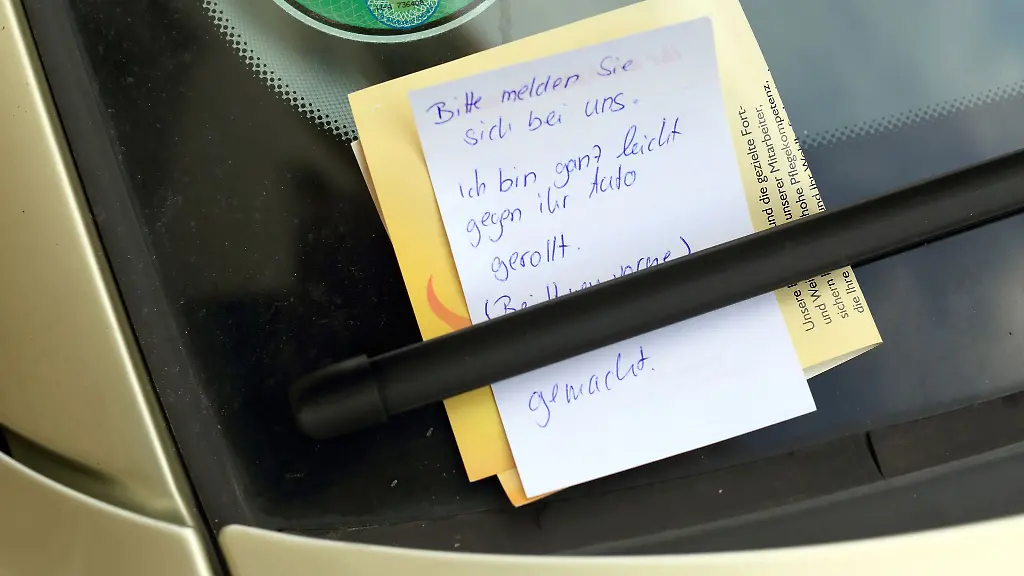 Bitte melden Sie
sich bei uns.
ich bin ganz leicht
gegen ihr Auto
gerollt.
(Bei Ihnen vorne)
gemacht.
und die gezielte Fort-
unserer Mitarbeiter,
hohe Pflegekompetenz.
und Ihr
Unsere
und
sichern
die Ihre